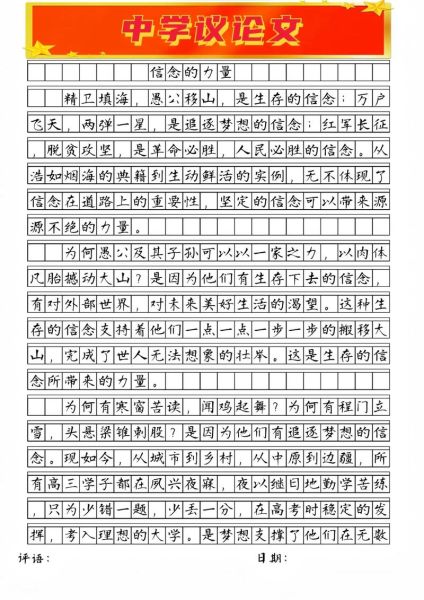 中学议论文
信念的力量
精卫填海，愚公移山，是生存的信念；万户
飞天，两弹一星，是追逐梦想的信念；红军长征
，脱贫攻坚，是革命必胜，人民必胜的信念。从
浩如烟海的典籍到生动鲜活的实例，无不体现了
信念在道路上的重要性，坚定的信念可以带来源
源不绝的力量。
为何愚公及其子孙可以以一家之力，以肉体
凡胎撼动大山？是因为他们有生存下去的信念，
有对外部世界，对未来美好生活的渴望。这种生
存的信念支持着他们一点一点一步一步的搬移大
山，完成了世人无法想象的壮举。这是生存的信
念所带来的力量。
为何有寒窗苦读，闻鸡起舞？为何有程门立
雪，头悬梁锥刺股？是因为他们有追逐梦想的信
念。现如今，从城市到乡村，从中原到边疆，所
有高三学子都在夙兴夜寐，夜以继日地勤学苦练
，只为少错一题，少丢一分，在高考时稳定的发
挥，考入理想的大学。是梦想支撑了他们在无数
评语： 日期：